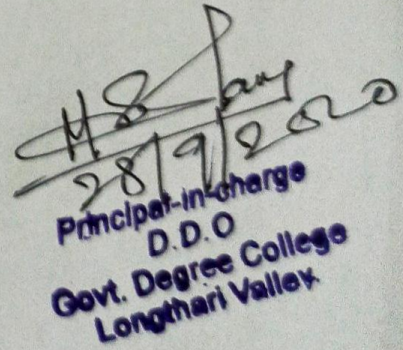 28/9/2020
Principal-in-charge
D.D.O
Govt. Degree College
Longthari Valley.